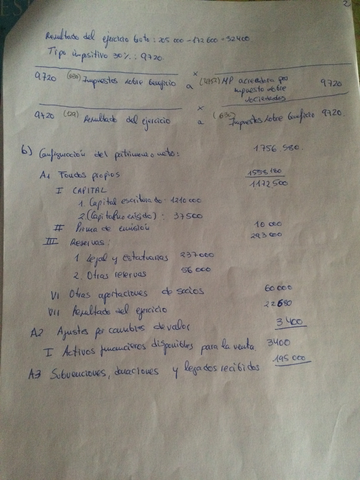 Resultado del ejercicio bruto: 205 000 - 172 600 = 32400
Tipo impositivo 30% : 9720
x
9720 Impuestos sobre beneficio a HP acreedora por impuesto sobre sociedades 9720
x
9720 Resultado del ejercicio a Impuestos sobre beneficio 9720
b) Configuración del patrimonio neto: 1 756 580
A1 Fondos propios
I CAPITAL 1172500
1. Capital escriturado: 1210000
2. (Capital no exigido): 37500
II Prima de emisión 10 000
III Reservas: 293.000
1 Legal y estatutarias 237000
2. Otras reservas 56 000
VI Otras aportaciones de socios 60000
VII Resultado del ejercicio 22680
A2 Ajustes por cambios de valor 3.400
I Activos financieros disponibles para la venta 3400
A3 Subvenciones, donaciones y legados recibidos 195 000